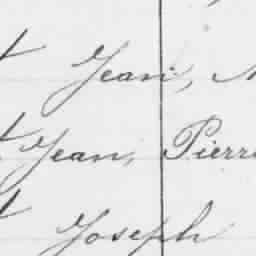 t Jean,
t Jean, Pierre
t Joseph